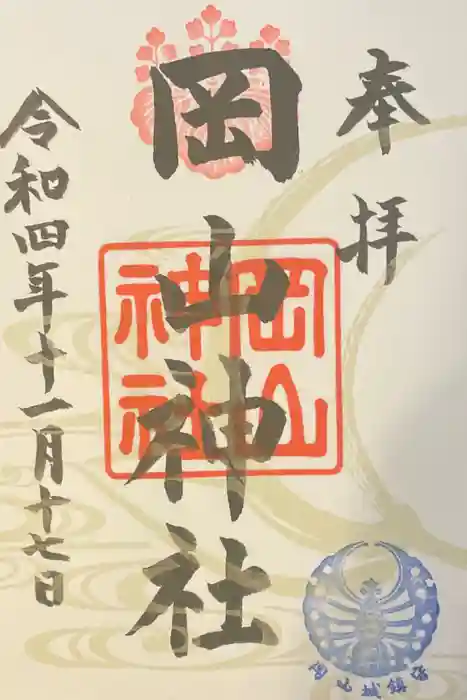 奉拝
岡山神社
岡山神社
令和四年十一月十七日
岡山城鎮護